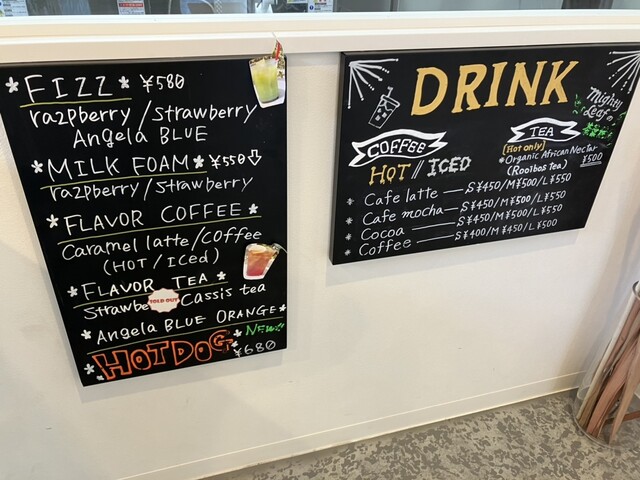 * FIZZ * ¥580
razpberry / strawberry
Angela BLUE
* MILK FOAM * ¥550
razpberry / strawberry
* FLAVOR COFFEE *
Caramel latte / COFFEE
(HOT / ICed)
* FLAVOR TEA *
Strawbe SOLD OUT Cassis tea
* Angela BLUE ORANGE *
* HOTDOG * NEW!!
¥680
DRINK
Mighty
Leaf
COFFEE
HOT // ICED
TEA
[Hot only]
* Organic African Nectar
(Rooibos Tea) ¥500
* Cafe latte — S¥450/M¥500/L¥550
* Cafe mocha — S¥450/M¥500/L¥550
* Cocoa — S¥450/M¥500/L¥550
* Coffee — S¥400/M¥450/L¥500